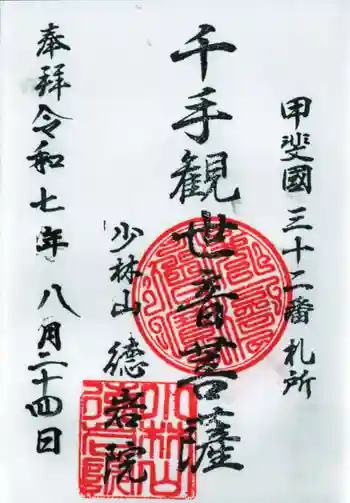 甲斐國三十二番札所
千手観世音菩薩
少林山 徳岩院
奉拝 令和七年八月二十四日